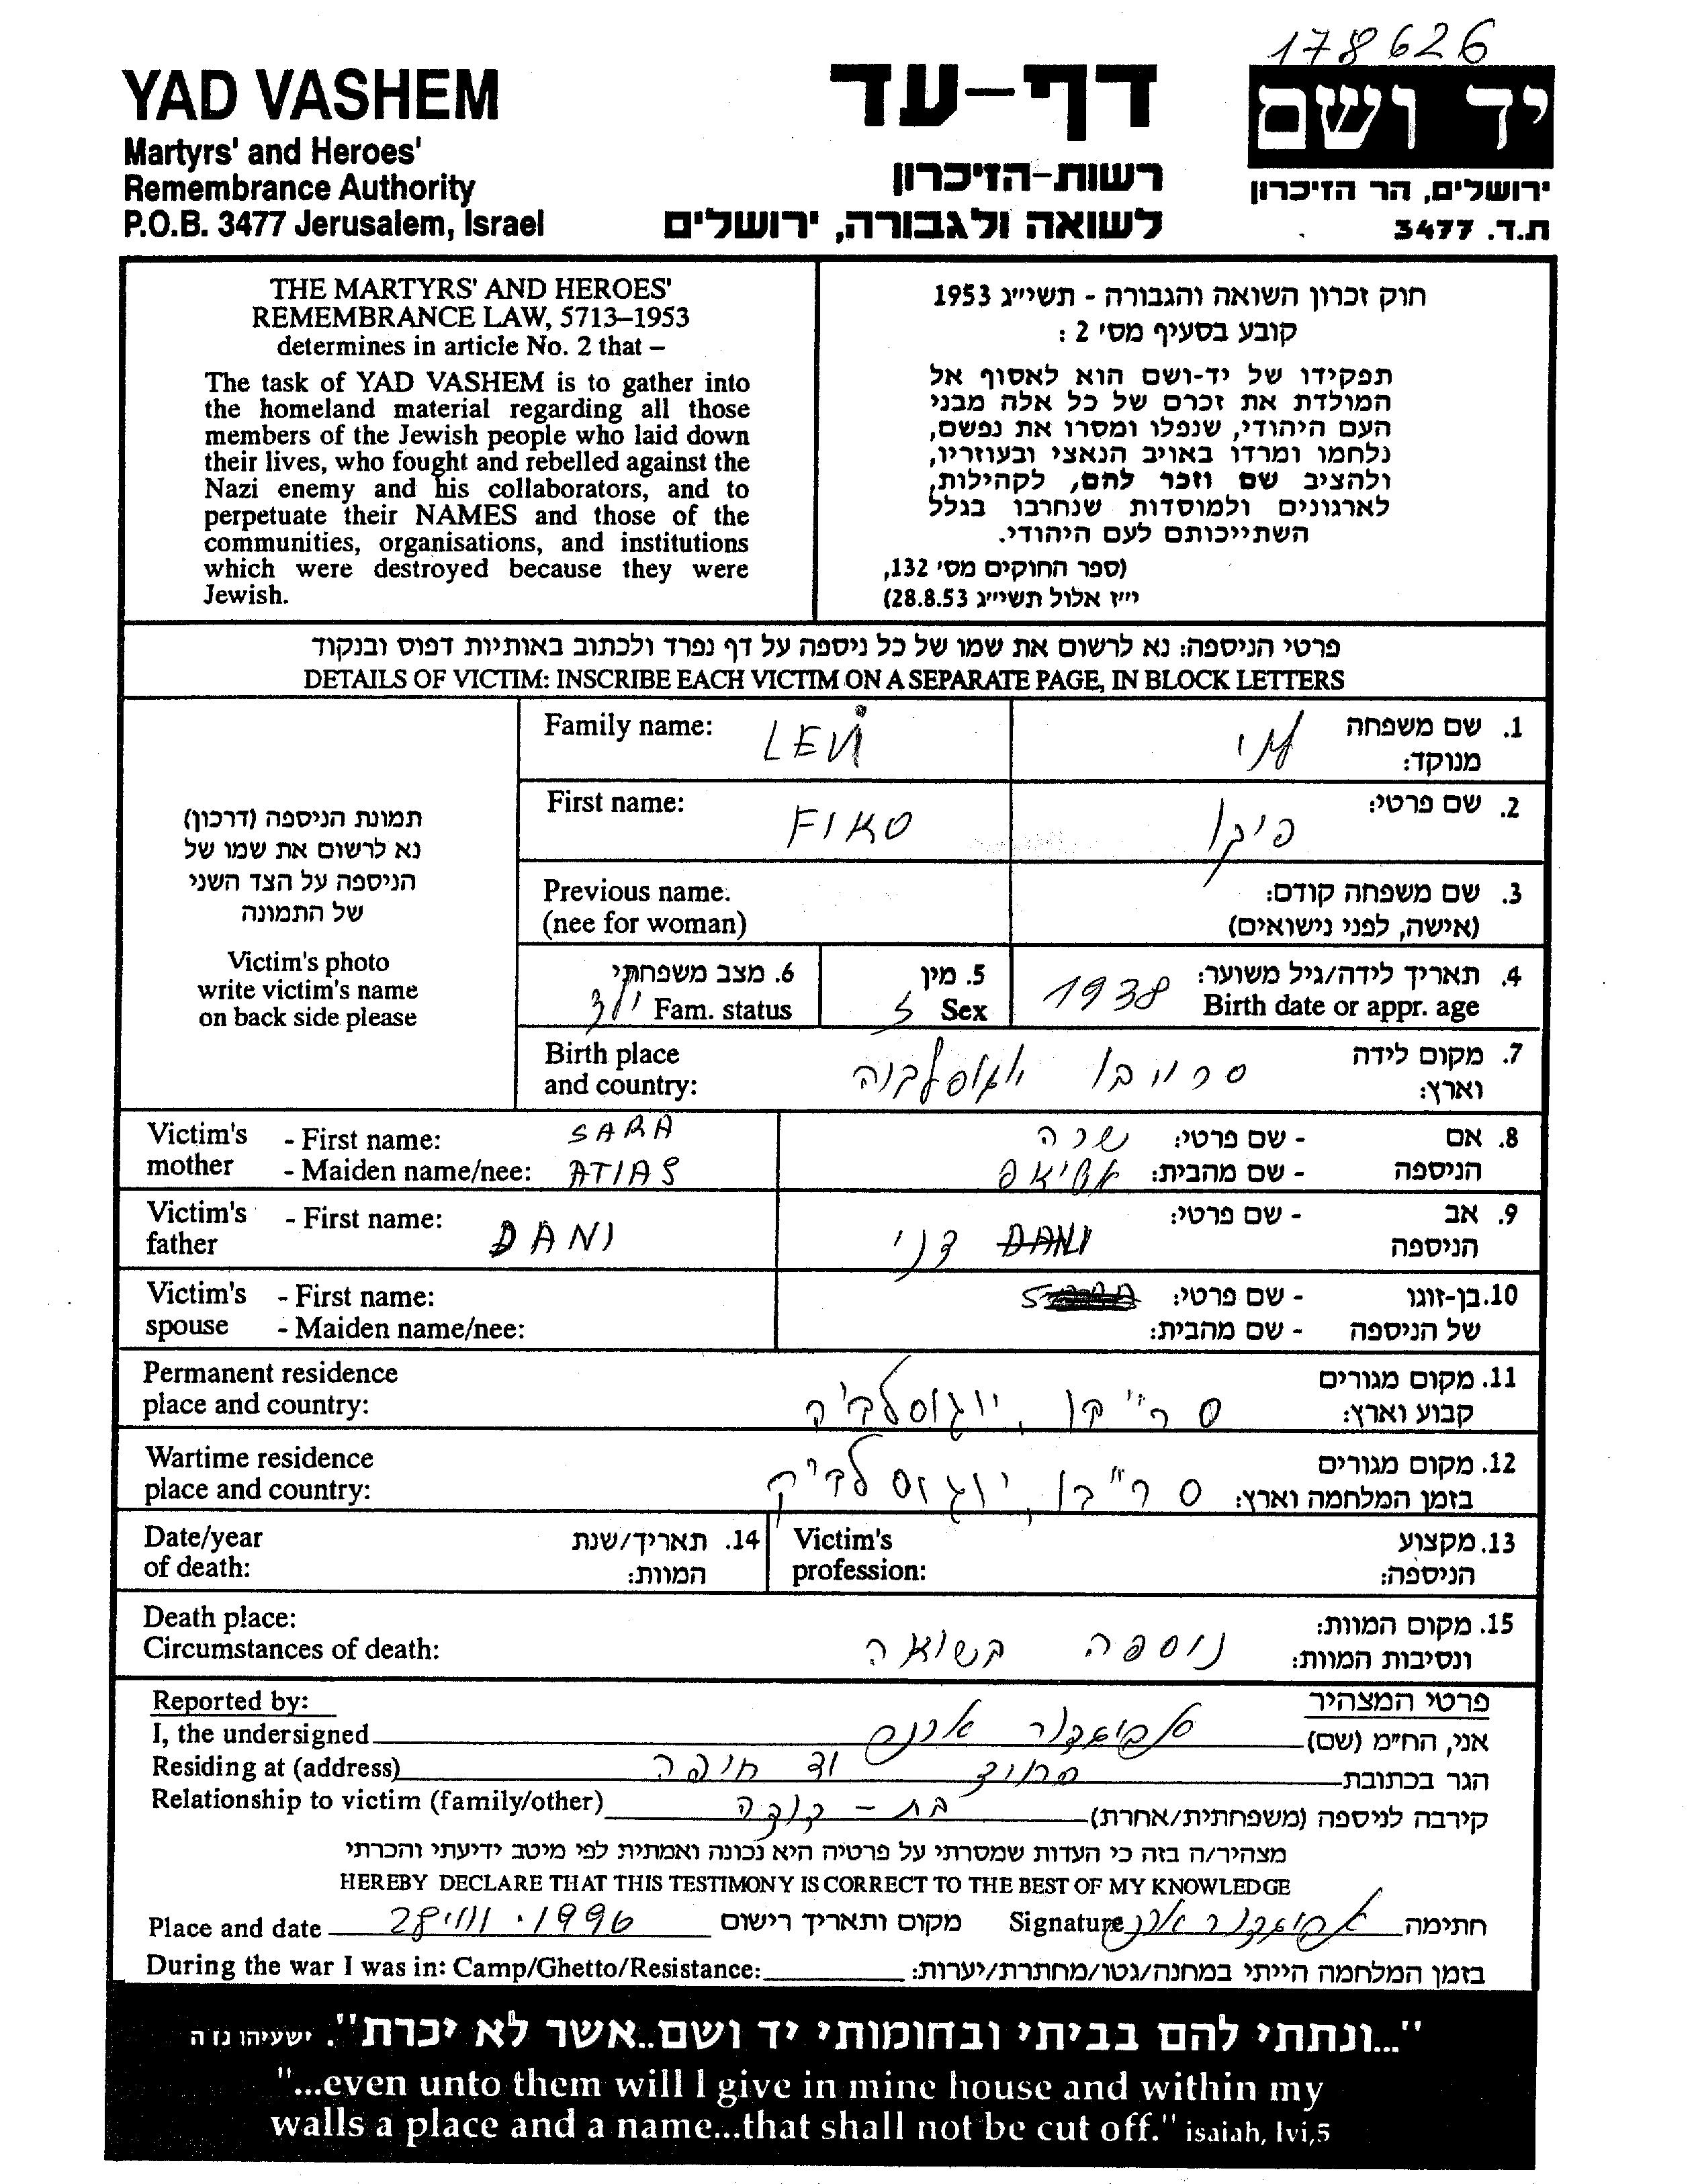 178626
YAD VASHEM
Martyrs' and Heroes'
Remembrance Authority
P.O.B. 3477 Jerusalem, Israel
דף-עד
רשות-הזיכרון
לשואה ולגבורה, ירושלים
יד ושם
ירושלים, הר הזיכרון
ת.ד. 3477
THE MARTYRS' AND HEROES'
REMEMBRANCE LAW, 5713–1953
determines in article No. 2 that –
The task of YAD VASHEM is to gather into
the homeland material regarding all those
members of the Jewish people who laid down
their lives, who fought and rebelled against the
Nazi enemy and his collaborators, and to
perpetuate their NAMES and those of the
communities, organisations, and institutions
which were destroyed because they were
Jewish.
חוק זכרון השואה והגבורה - תשי״ג 1953
קובע בסעיף מס׳ 2 :
תפקידו של יד-ושם הוא לאסוף אל
המולדת את זכרם של כל אלה מבני
העם היהודי, שנפלו ומסרו את נפשם,
נלחמו ומרדו באויב הנאצי ובעוזריו,
ולהציב שם וזכר להם, לקהילות,
לארגונים ולמוסדות שנחרבו בגלל
השתייכותם לעם היהודי.
(ספר החוקים מס׳ 132,
י״ז אלול תשי״ג 28.8.53)
פרטי הניספה: נא לרשום את שמו של כל ניספה על דף נפרד ולכתוב באותיות דפוס ובנקוד
DETAILS OF VICTIM: INSCRIBE EACH VICTIM ON A SEPARATE PAGE, IN BLOCK LETTERS
תמונת הניספה (דרכון)
נא לרשום את שמו של
הניספה על הצד השני
של התמונה
Victim's photo
write victim's name
on back side please
Family name: LEVI
1. שם משפחה מנוקד: לוי
First name: FIKO
2. שם פרטי: פיקו
Previous name.
(nee for woman)
3. שם משפחה קודם:
(אישה, לפני נישואים)
4. תאריך לידה/גיל משוער:
Birth date or appr. age 1938
5. מין
Sex ז
6. מצב משפחתי
Fam. status ילד
Birth place
and country:
7. מקום לידה
וארץ: סרייבו יוגוסלביה
Victim's mother - First name: SARA
- Maiden name/nee: ATIAS
8. אם הניספה - שם פרטי: שרה
- שם מהבית: אטיאס
Victim's father - First name: DANI
9. אב הניספה - שם פרטי: DANI דני
Victim's spouse - First name:
- Maiden name/nee:
10. בן-זוגו של הניספה - שם פרטי:
- שם מהבית:
Permanent residence
place and country:
11. מקום מגורים
קבוע וארץ: סרייבו, יוגוסלביה
Wartime residence
place and country:
12. מקום מגורים
בזמן המלחמה וארץ: סרייבו, יוגוסלביה
Date/year
of death:
14. תאריך/שנת
המוות:
Victim's
profession:
13. מקצוע
הניספה:
Death place:
Circumstances of death:
15. מקום המוות:
ונסיבות המוות: נוספה בשואה
Reported by:
פרטי המצהיר
I, the undersigned
אני, הח״מ (שם)
Residing at (address)
הגר בכתובת חיפה
Relationship to victim (family/other)
קירבה לניספה (משפחתית/אחרת) בת - דודה
מצהיר/ה בזה כי העדות שמסרתי על פרטיה היא נכונה ואמתית לפי מיטב ידיעתי והכרתי
HEREBY DECLARE THAT THIS TESTIMONY IS CORRECT TO THE BEST OF MY KNOWLEDGE
Place and date 1996 מקום ותאריך רישום
Signature חתימה
During the war I was in: Camp/Ghetto/Resistance:
בזמן המלחמה הייתי במחנה/גטו/מחתרת/יערות:
"...ונתתי להם בביתי ובחומותי יד ושם..אשר לא יכרת". ישעיהו נו ה
"...even unto them will I give in mine house and within my
walls a place and a name...that shall not be cut off." isaiah, lvi,5